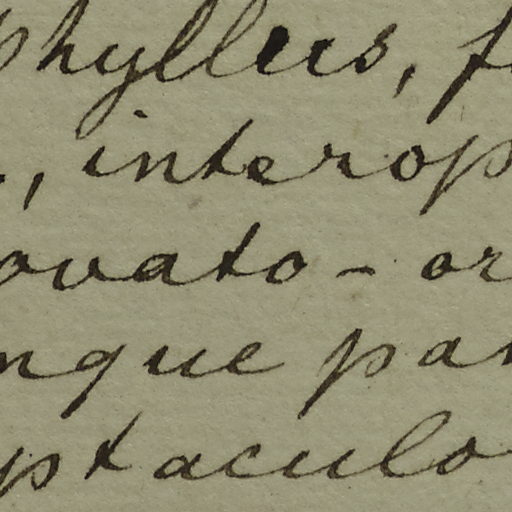 phyllus, f
., interop
ovato - or
nque par
ptaculo